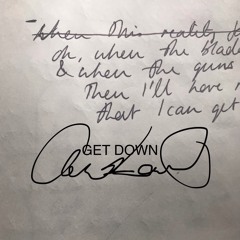 when this reality
oh, when the blade
& when the guns
Then I'll have
that I can get
GET DOWN